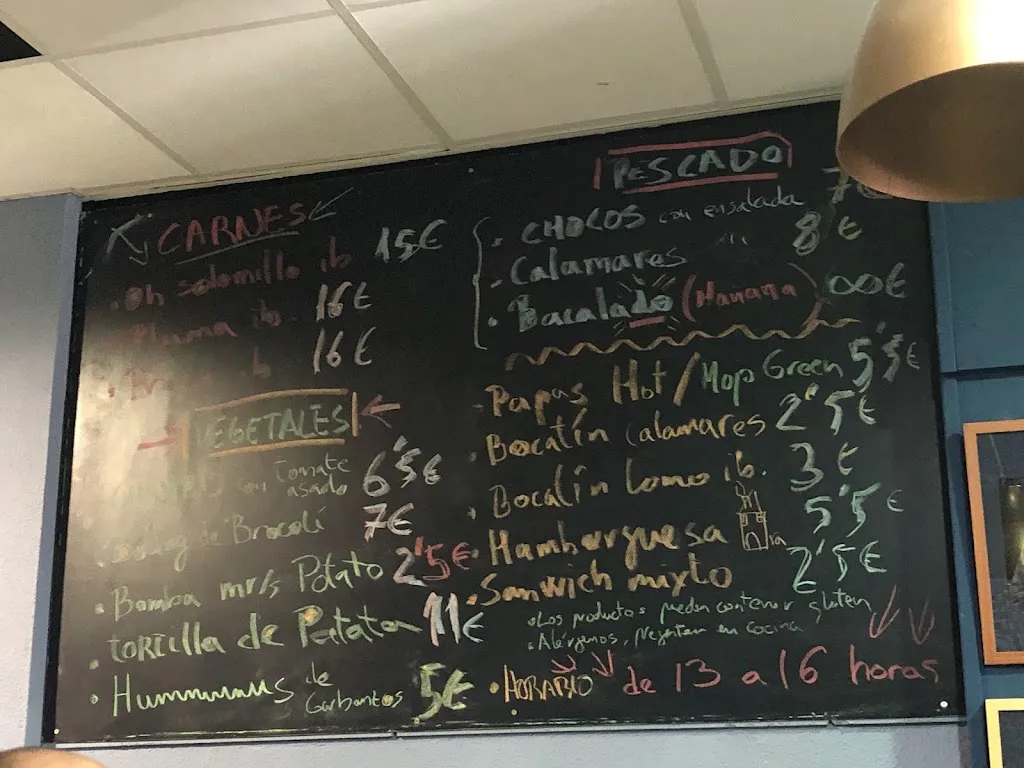 CARNES
Oh solomillo ib 15€
Pluma ib. 16€
b 16€
VEGETALES
con tomate asado 6'5€
de Brocolí 7€
Bomba mr/s Potato 2'5€
tortilla de Patata 11€
Hummmmus de Garbantos 5€
PESCADO
CHOCOS con ensalada 7€
Calamares "" 8€
Bacalado (Mañana) ∞€
Papas Hot/Mop Green 5'5€
Bocatín Calamares 2'5€
Bocatín Lomo ib. 3€
Hamburguesa 5'5€
Sanwich mixto 2'5€
Los productos pueden contener gluten
Alérgenos, pregunten en cocina
HORARIO de 13 a 16 horas